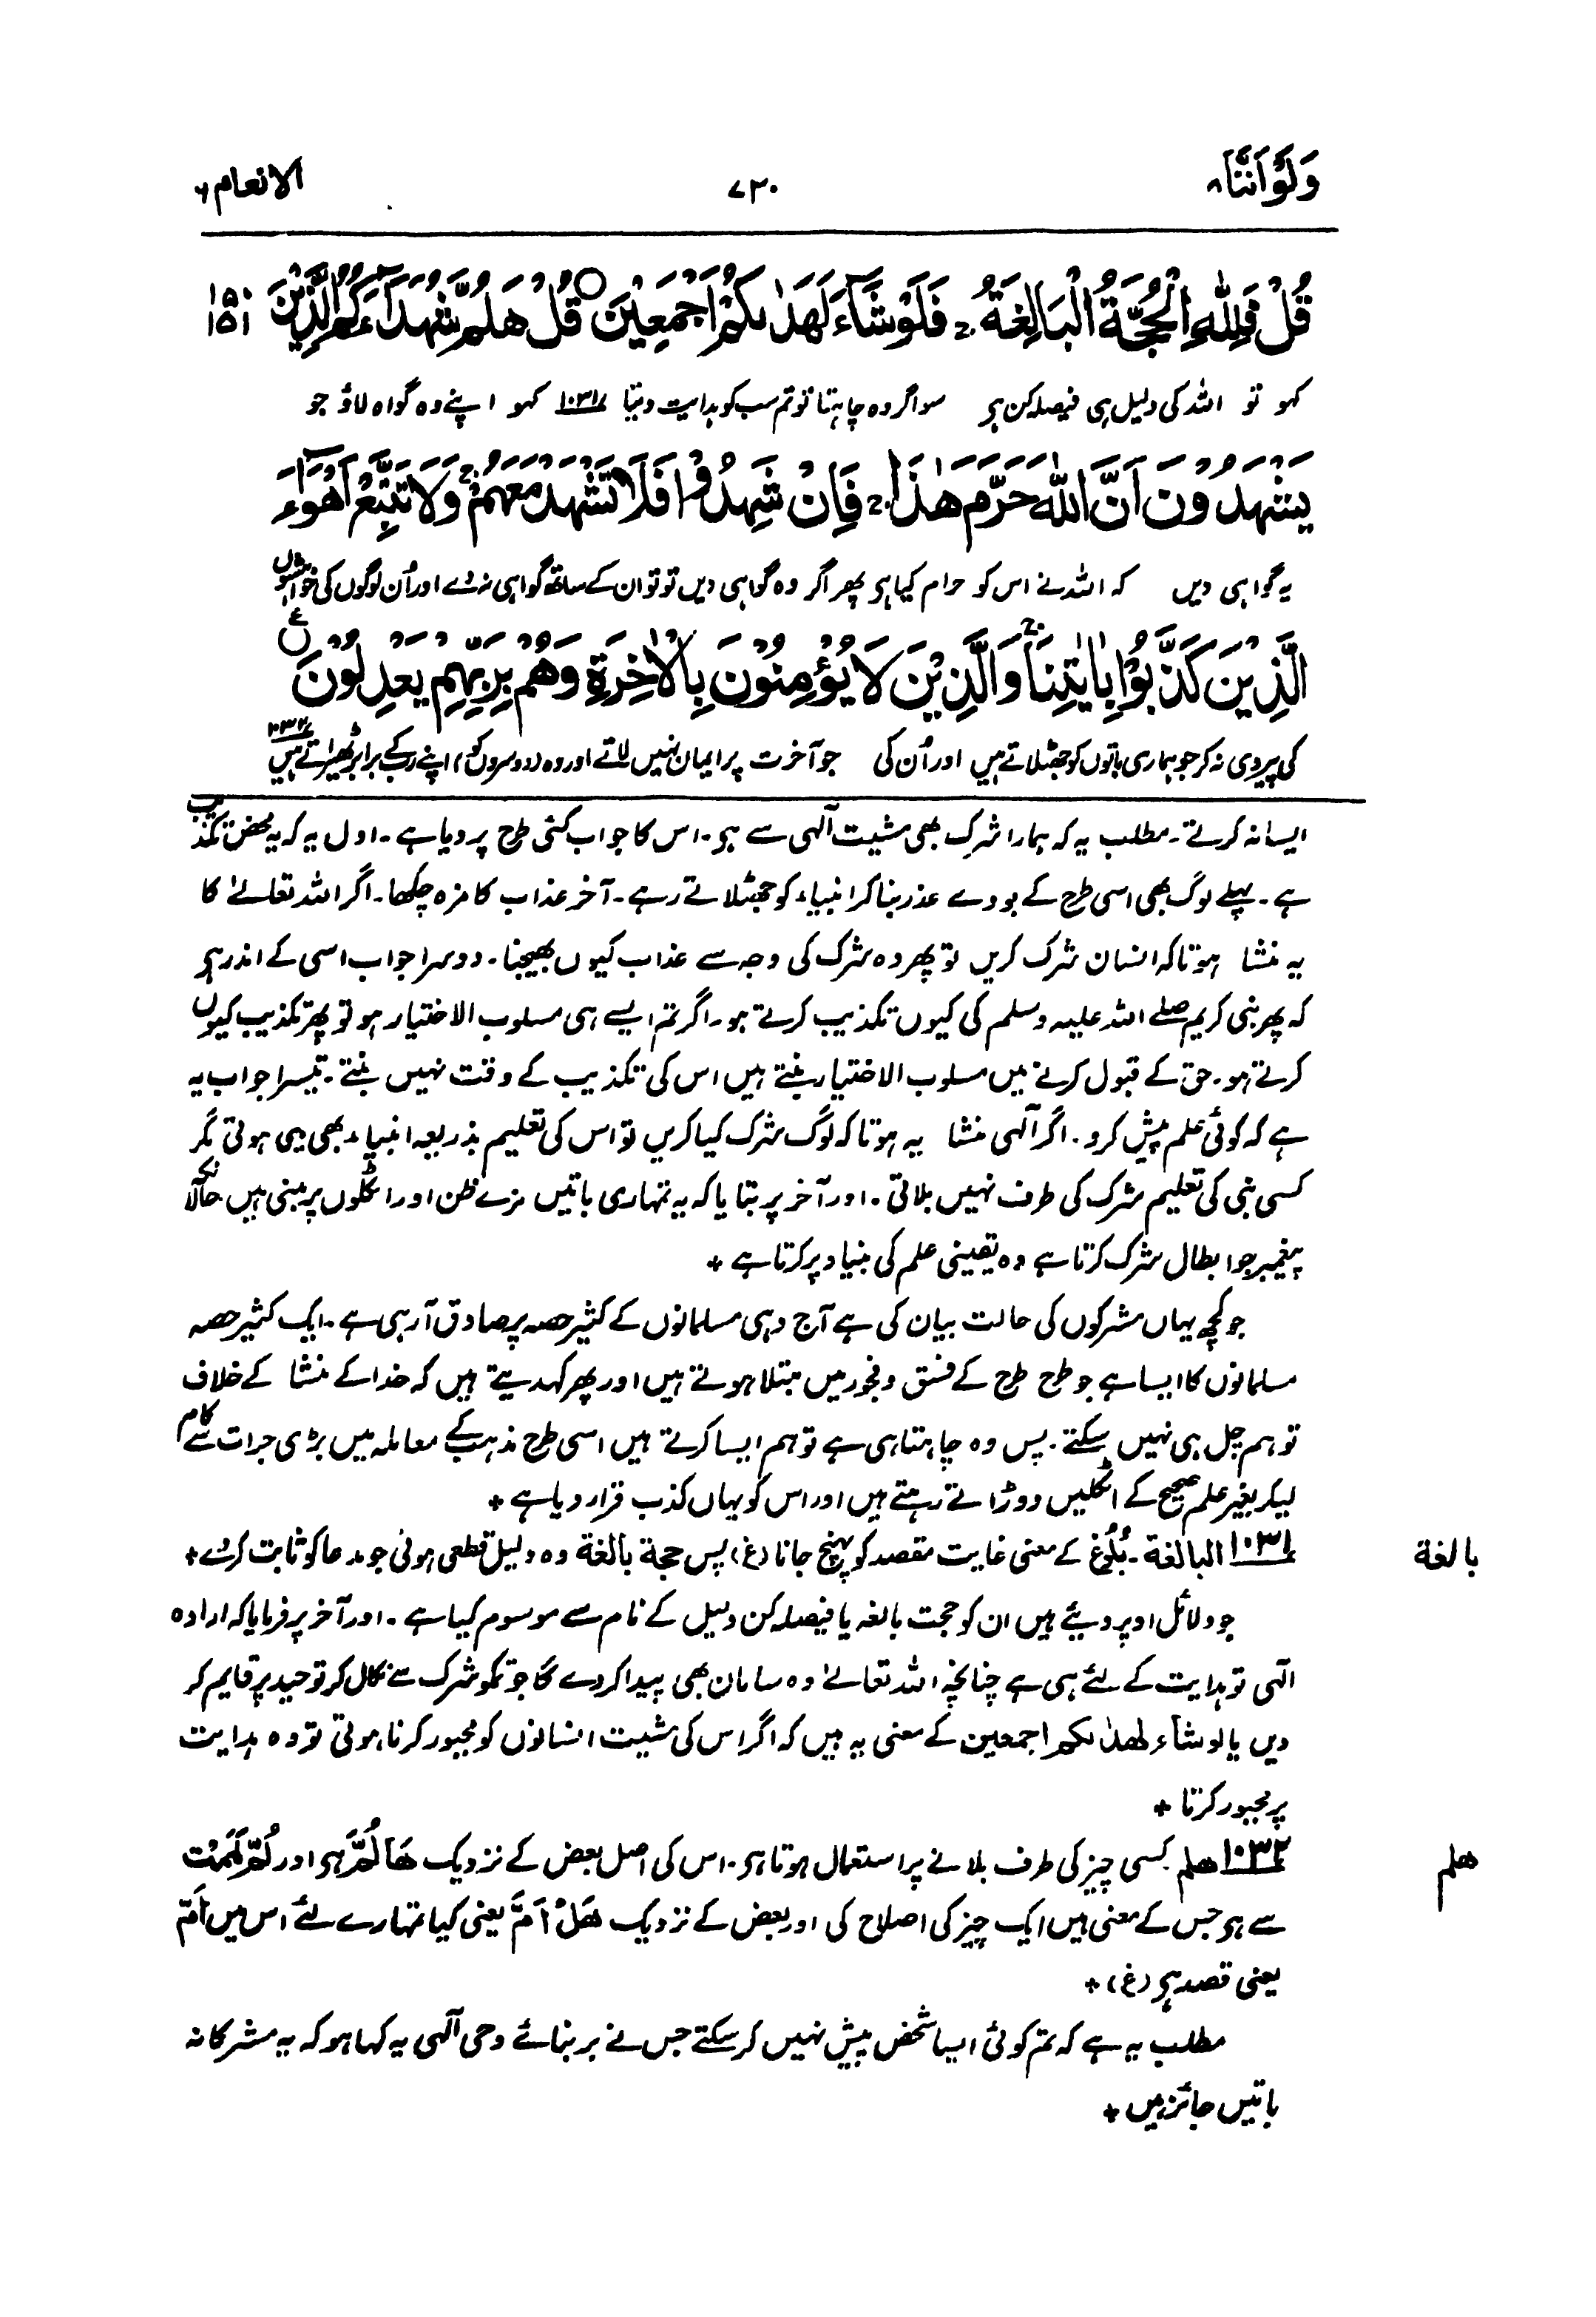 وَلَوْ اَنَّنَا ۸
۷۳۰
الانعام ۶
قُلْ فَلِلّٰهِ الْحُجَّةُ الْبَالِغَةُ ۚ فَلَوْ شَآءَ لَهَدٰىكُمْ اَجْمَعِيْنَ ○ قُلْ هَلُمَّ شُهَدَآءَكُمُ الَّذِيْنَ
۱۵۰
۱۵۱
کہو تو اللہ کی دلیل ہی فیصلہ کن ہی سو اگر وہ چاہتا تو تم سب کو ہدایت دیتا ۱۰۳۱ کہو اپنے وہ گواہ لاؤ جو
يَشْهَدُوْنَ اَنَّ اللّٰهَ حَرَّمَ هٰذَا ۚ فَاِنْ شَهِدُوْا فَلَا تَشْهَدْ مَعَهُمْ ۚ وَلَا تَتَّبِعْ اَهْوَآءَ
یہ گواہی دیں کہ اللہ نے اس کو حرام کیا ہی پھر اگر وہ گواہی دیں تو تو ان کے ساتھ گواہی نہ دے اور اُن لوگوں کی خواہشوں
الَّذِيْنَ كَذَّبُوْا بِاٰيٰتِنَا وَالَّذِيْنَ لَا يُؤْمِنُوْنَ بِالْاٰخِرَةِ وَهُمْ بِرَبِّهِمْ يَعْدِلُوْنَ ع
کی پیروی نہ کر جو ہماری باتوں کو جھٹلاتے ہیں اور اُن کی جو آخرت پر ایمان نہیں لاتے اور وہ (دوسروں کو) اپنے رب کے برابر ٹھیراتے ہیں ۱۰۳۲
ایسا نہ کرتے ۔ مطلب یہ کہ ہمارا شرک بھی مشیت الٰہی سے ہو ۔ اس کا جواب کئی طرح پر دیا ہے ۔ اول یہ کہ یہ محض تکذیب
ہے ۔ پہلے لوگ بھی اسی طرح کے بودے عذر بنا کر انبیاء کو جھٹلاتے رہے ۔ آخر عذاب کا مزہ چکھا ۔ اگر اللہ تعالےٰ کا
یہ منشا ہوتا کہ انسان شرک کریں تو پھر وہ شرک کی وجہ سے عذاب کیوں بھیجتا ۔ دوسرا جواب اسی کے اندر ہی
کہ پھر نبی کریم صلے اللہ علیہ وسلم کی کیوں تکذیب کرتے ہو ۔ اگر تم ایسے ہی مسلوب الاختیار ہو تو پھر تکذیب کیوں
کرتے ہو ۔ حق کے قبول کرنے میں مسلوب الاختیار بنتے ہیں اس کی تکذیب کے وقت نہیں بنتے ۔ تیسرا جواب یہ
ہے کہ کوئی علم پیش کرو ۔ اگر الٰہی منشا یہ ہوتا کہ لوگ شرک کیا کریں تو اس کی تعلیم بذریعہ انبیاء بھی یہی ہوتی مگر
کسی نبی کی تعلیم شرک کی طرف نہیں بلاتی ۔ اور آخر پر بتایا کہ یہ تمہاری باتیں نرے ظن اور اٹکلوں پر مبنی ہیں حالانکہ
پیغمبر جو ابطال شرک کرتا ہے وہ یقینی علم کی بنیاد پر کرتا ہے +
جو کچھ یہاں مشرکوں کی حالت بیان کی ہے آج وہی مسلمانوں کے کثیر حصہ پر صادق آ رہی ہے ۔ ایک کثیر حصہ
مسلمانوں کا ایسا ہے جو طرح طرح کے فسق و فجور میں مبتلا ہوتے ہیں اور پھر کہدیتے ہیں کہ خدا کے منشا کے خلاف
تو ہم چل ہی نہیں سکتے ۔ پس وہ چاہتا ہی ہے تو ہم ایسا کرتے ہیں اسی طرح مذہب کے معاملہ میں بڑی جرات سے کام
لیکر بغیر علم صحیح کے اٹکلیں دوڑاتے رہتے ہیں اور اس کو یہاں کذب قرار دیا ہے +
بالغة
۱۰۳۱ البالغة ۔ بُلُوغ کے معنی غایت مقصد کو پہنچ جانا (غ) پس حجة بالغة وہ دلیل قطعی ہوئی جو مدعا کو ثابت کر دے +
جو دلائل اوپر دیئے ہیں ان کو حجت بالغہ یا فیصلہ کن دلیل کے نام سے موسوم کیا ہے ۔ اور آخر پر فرمایا کہ ارادہ
الٰہی تو ہدایت کے لئے ہی ہے چنانچہ اللہ تعالےٰ وہ سامان بھی پیدا کر دے گا جو تمکو شرک سے نکال کر توحید پر قایم کر
دیں یا لو شاء لهدٰىكم اجمعين کے معنی یہ ہیں کہ اگر اس کی مشیت انسانوں کو مجبور کرنا ہوتی تو وہ ہدایت
پر مجبور کرتا +
هلم
۱۰۳۲ هلم کسی چیز کی طرف بلانے پر استعمال ہوتا ہی ۔ اس کی اصل بعض کے نزدیک هَالُمَّ ہی اور لُمَّ لَمَمْتُ
سے ہی جس کے معنی ہیں ایک چیز کی اصلاح کی اور بعض کے نزدیک هَلْ اَمَّ یعنی کیا تمہارے لئے اس میں اَمّ
یعنی قصد ہی (غ) +
مطلب یہ ہے کہ تم کوئی ایسا شخص پیش نہیں کر سکتے جس نے بر بنائے وحی الٰہی یہ کہا ہو کہ یہ مشرکانہ
باتیں جائز ہیں +